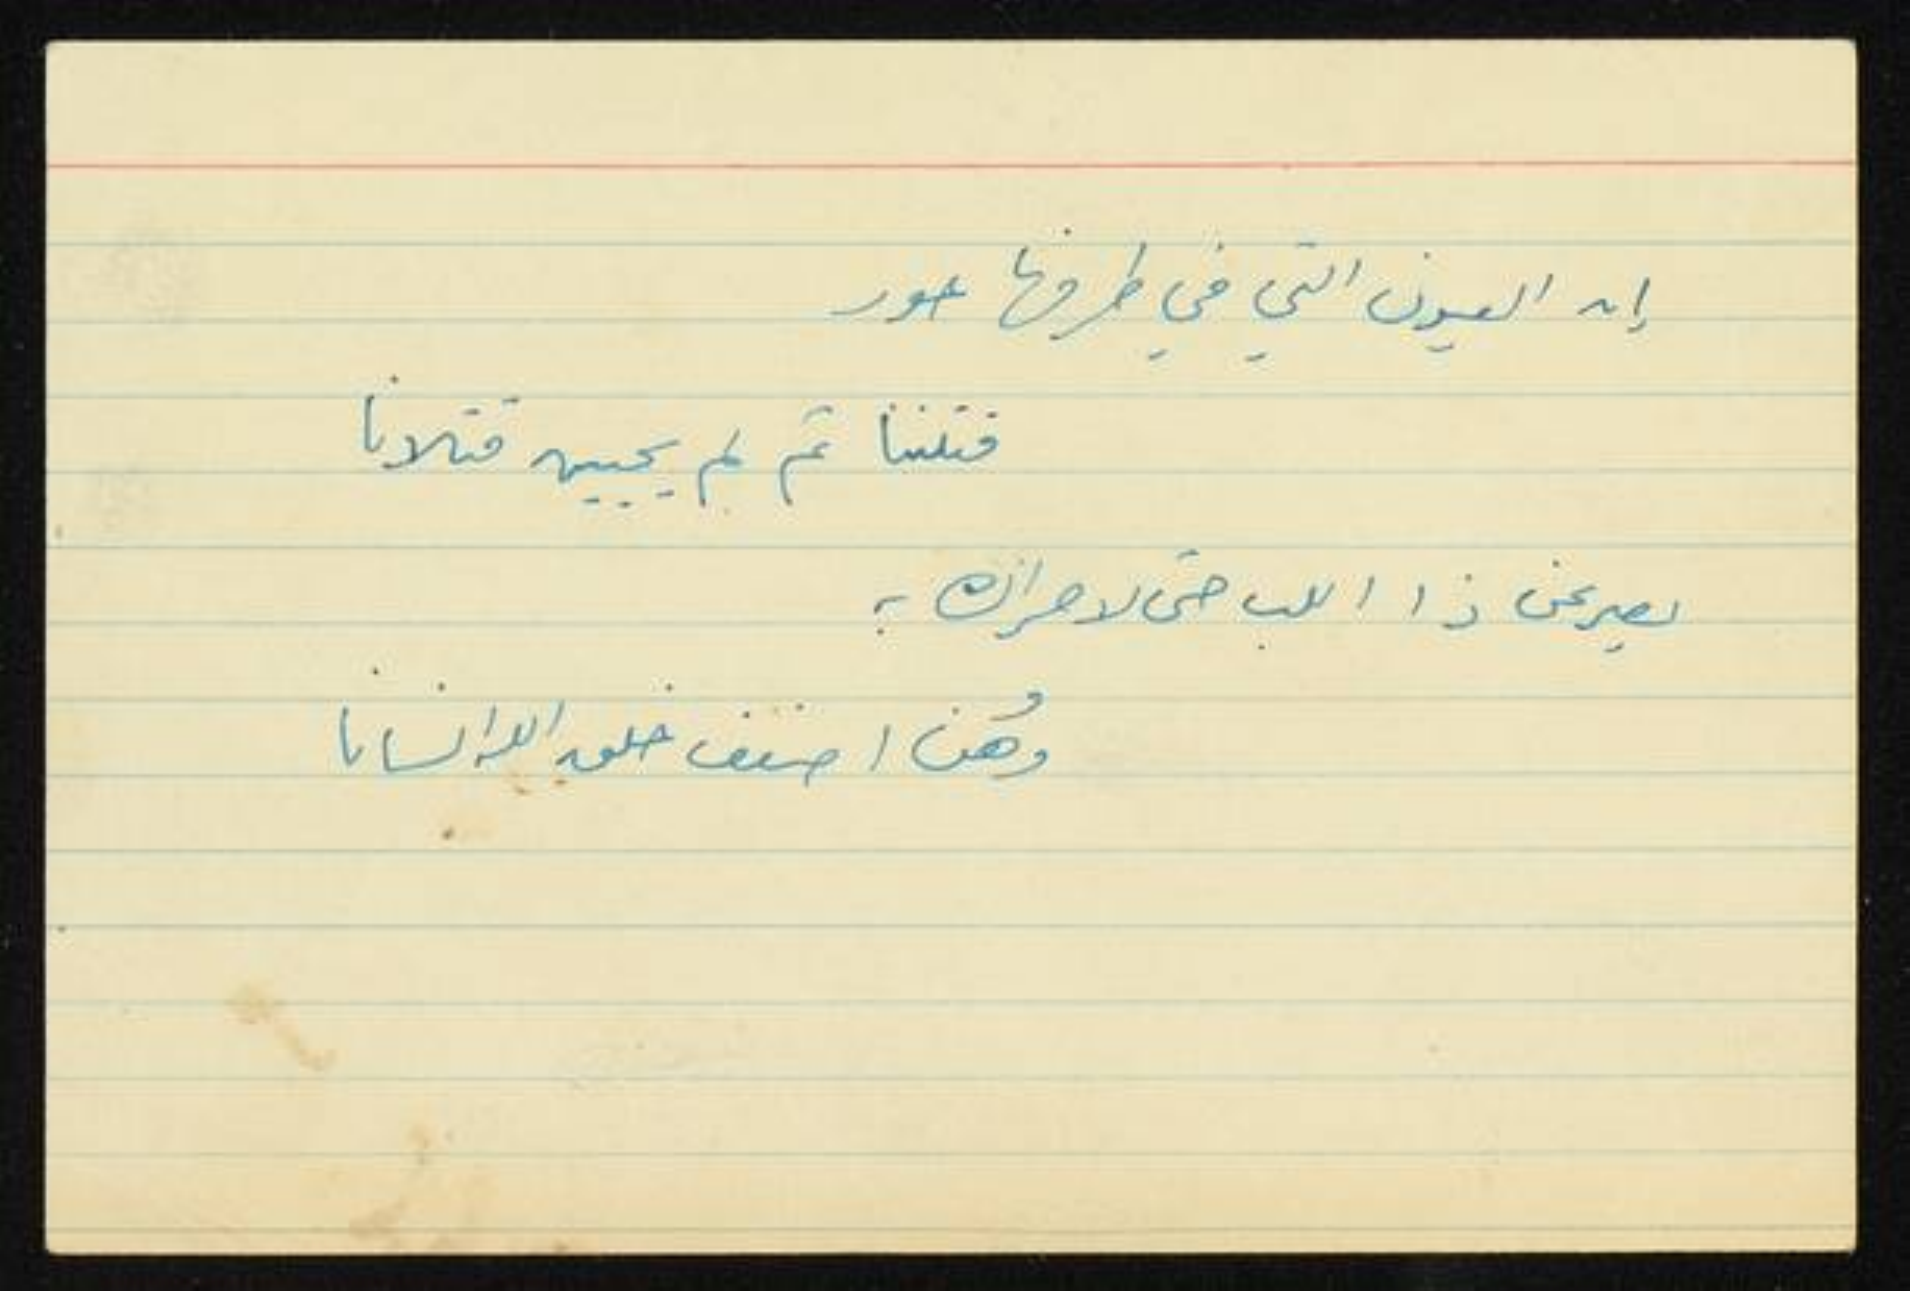 إن العيون التي في طرفها حور
قتلننا ثم لم يحيين قتلانا
يصرعن ذا اللب حتى لا حراك به
وهُن اضعف خلق الله انسانا